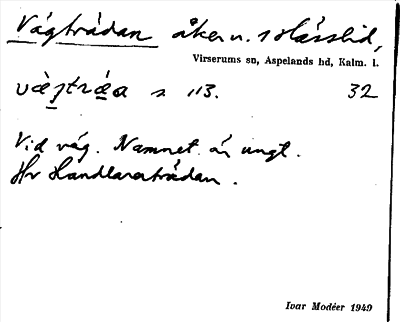 Vägträdan åker u. 1 Hässlid,
Virserums sn, Aspelands hd, Kalm. l.
s. 113. 32
Vid väg. Namnet är ungt.
Hr Handlareträdan.
Ivar Modéer 1949